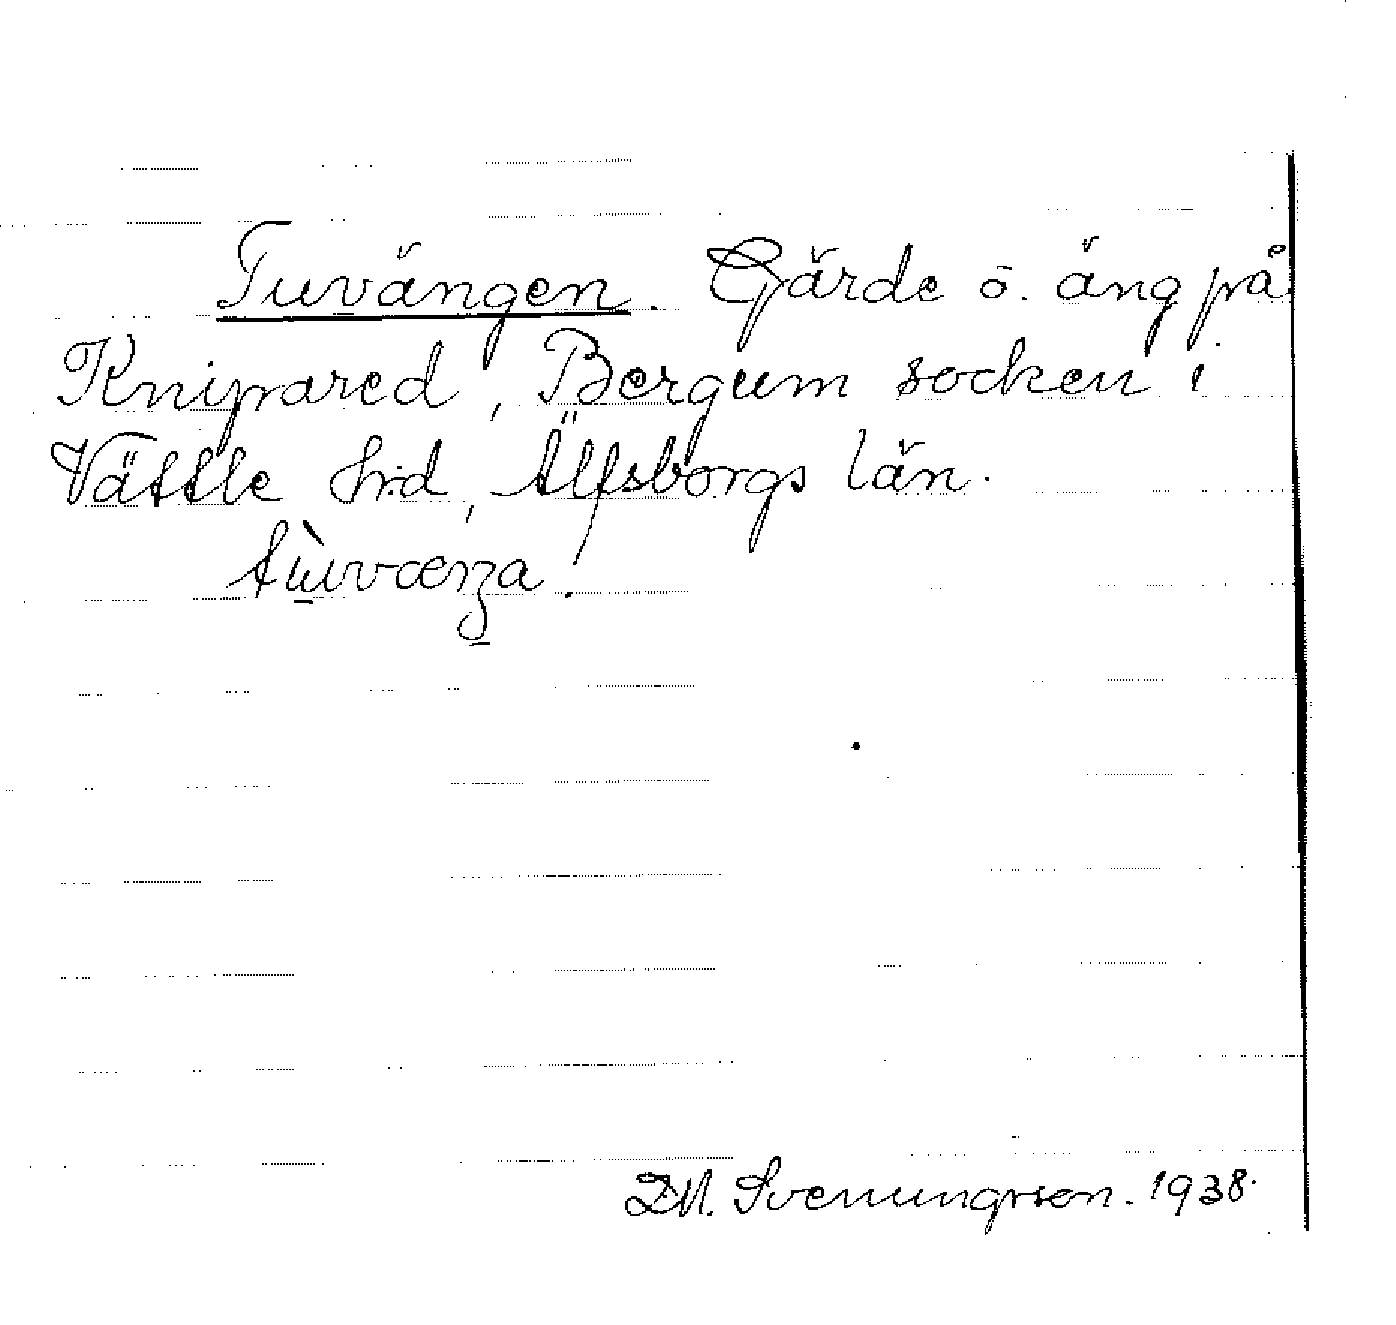 Tuvängen. Gärde o. äng på
Knipared, Bergum socken i
Vättle hrd, Älfsborgs län.
D.M. Svenungsson. 1938.